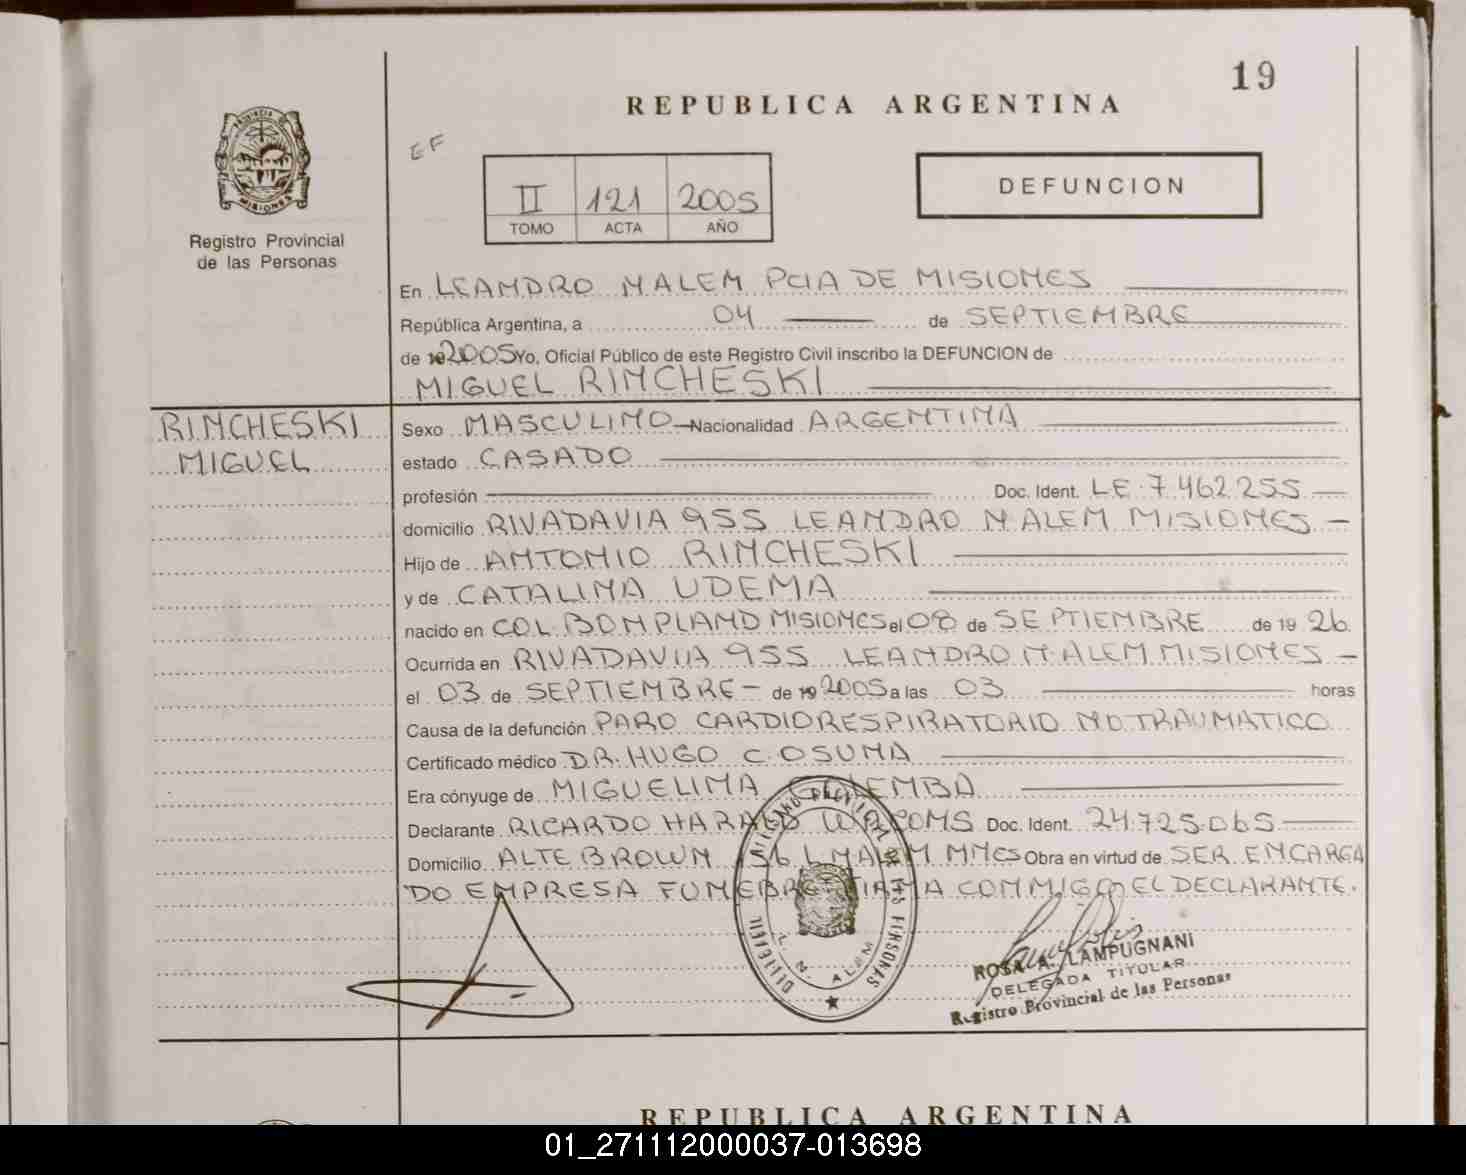 19
REPUBLICA ARGENTINA
PROVINCIA DE
MISIONES
EF
II 121 2005
TOMO ACTA AÑO
DEFUNCION
Registro Provincial
de las Personas
En LEANDRO N ALEM PCIA DE MISIONES
República Argentina, a 04 de SEPTIEMBRE
de 2005 Yo, Oficial Público de este Registro Civil inscribo la DEFUNCION de
MIGUEL RINCHESKI
RINCHESKI
MIGUEL
Sexo MASCULINO Nacionalidad ARGENTINA
estado CASADO
profesión Doc. Ident. LE 7.462.255
domicilio RIVADAVIA 955 LEANDRO N ALEM MISIONES
Hijo de ANTONIO RINCHESKI
y de CATALINA UDEMA
nacido en COL. BONPLAND MISIONES el 08 de SEPTIEMBRE de 19 26
Ocurrida en RIVADAVIA 955 LEANDRO N ALEM MISIONES
el 03 de SEPTIEMBRE de 2005 a las 03 horas
Causa de la defunción PARO CARDIORESPIRATORIO NO TRAUMATICO
Certificado médico DR. HUGO C OSUNA
Era cónyuge de MIGUELINA
Declarante RICARDO HARALD Doc. Ident. 24.725.065
Domicilio ALTE BROWN 156 L N ALEM MNES Obra en virtud de SER ENCARGA
DO EMPRESA FUNEBRE FIRMA CONMIGO EL DECLARANTE.
REGISTRO PROVINCIAL DE LAS PERSONAS
L. N. ALEM
ROSA A. LAMPUGNANI
DELEGADA TITULAR
Registro Provincial de las Personas
REPUBLICA ARGENTINA
01_271112000037-013698